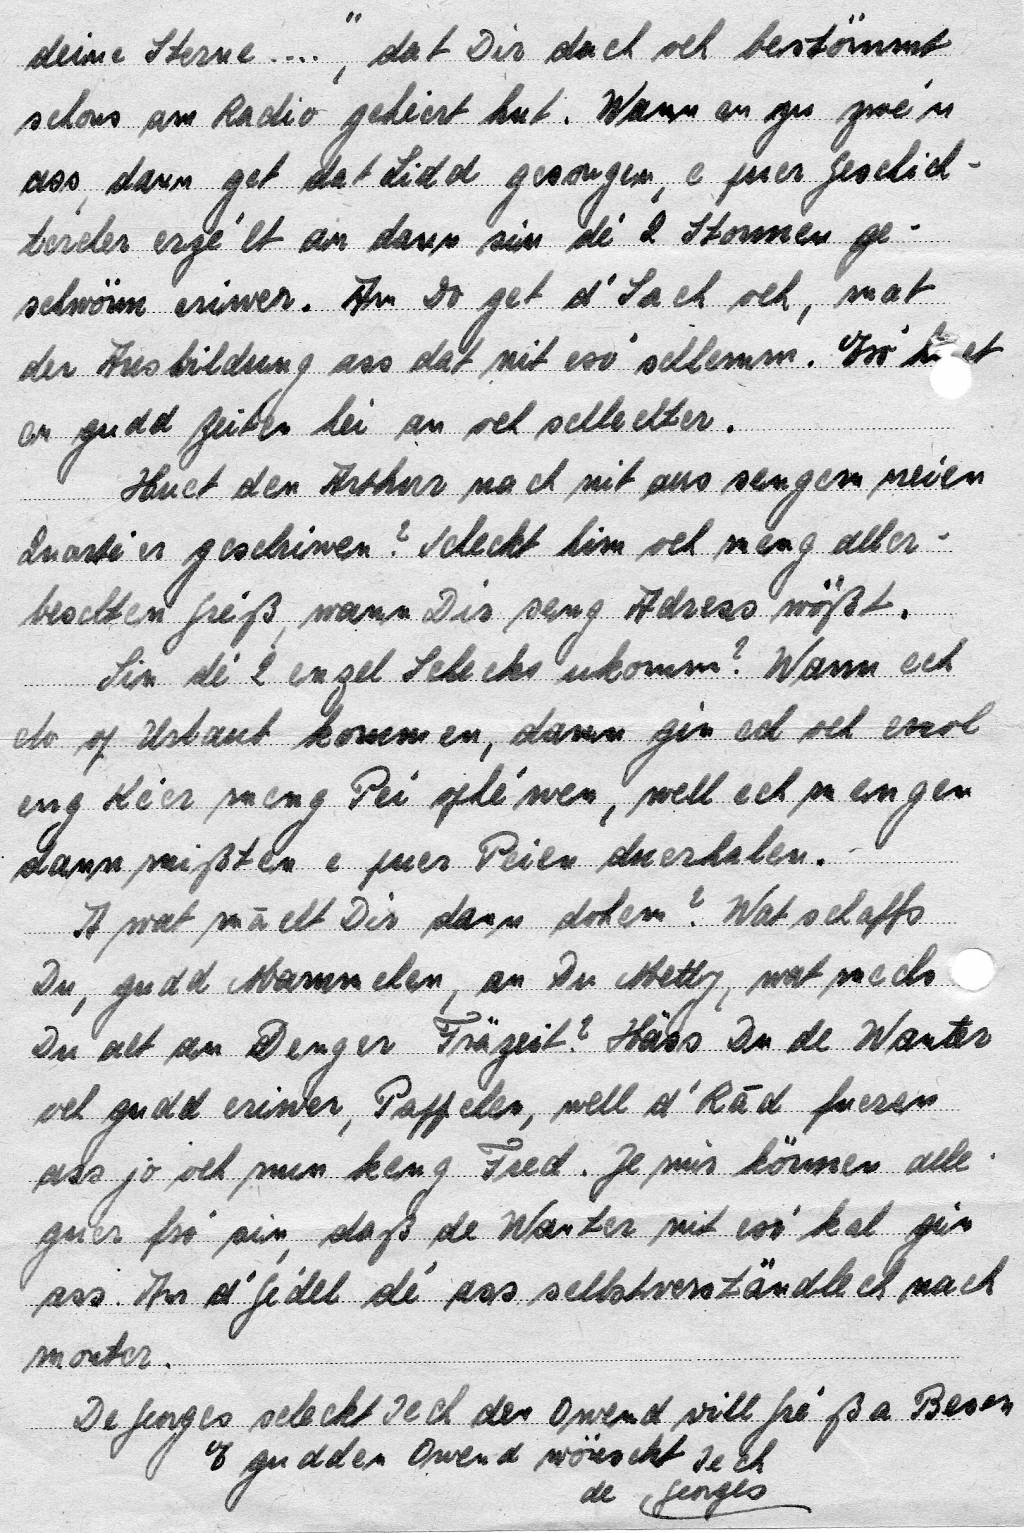 deine Sterne ....", dat Dir dach och bestömmt
schons am Radio gehéert hut. Wann en zu zwé'n
ass, dann get dat Lidd gesongen, e puer Geschich-
tercher erzé'lt an dann sin dé 2 Stonnen ge-
schwönn eriwer. An Do get d' Sach och, mat
der Ausbildung ass dat nit esó schlemm. Esó huet
en gudd Zeiten hei an och schlechter.
Huet den Arthur nach nit aus sengem neien
Quartéer geschriwen? Scheckt him och meng aller-
beschten Gréiß, wann Dir seng Adress wößt.
Sin dé 2 enzel Schecks ukomm? Wann ech
do op Urlaub kommen, dann gin ech och emol
eng Kéer meng Péi ophéwen, well ech mengen
dann mißten e puer Peien duerhalen.
A wat mācht Dir dann dohem? Wat schaffs
Du, gudd Mammchen, an Du Metty, wat mechs
Du alt an Denger Fräzeit? Häss Du de Wanter
och gudd eriwer, Pappchen, well d' Rād fueren
ass jo och mun keng Fred. Je mir können alle-
guer fró sin, daß de Wanter nit esó kal gin
ass. An d' Gédel dé ass selbstverständlech nach
monter.
De Georges scheckt Iech den Owend vill Gréiß a Besen
E gudden Owend wönscht Iech
de Georges